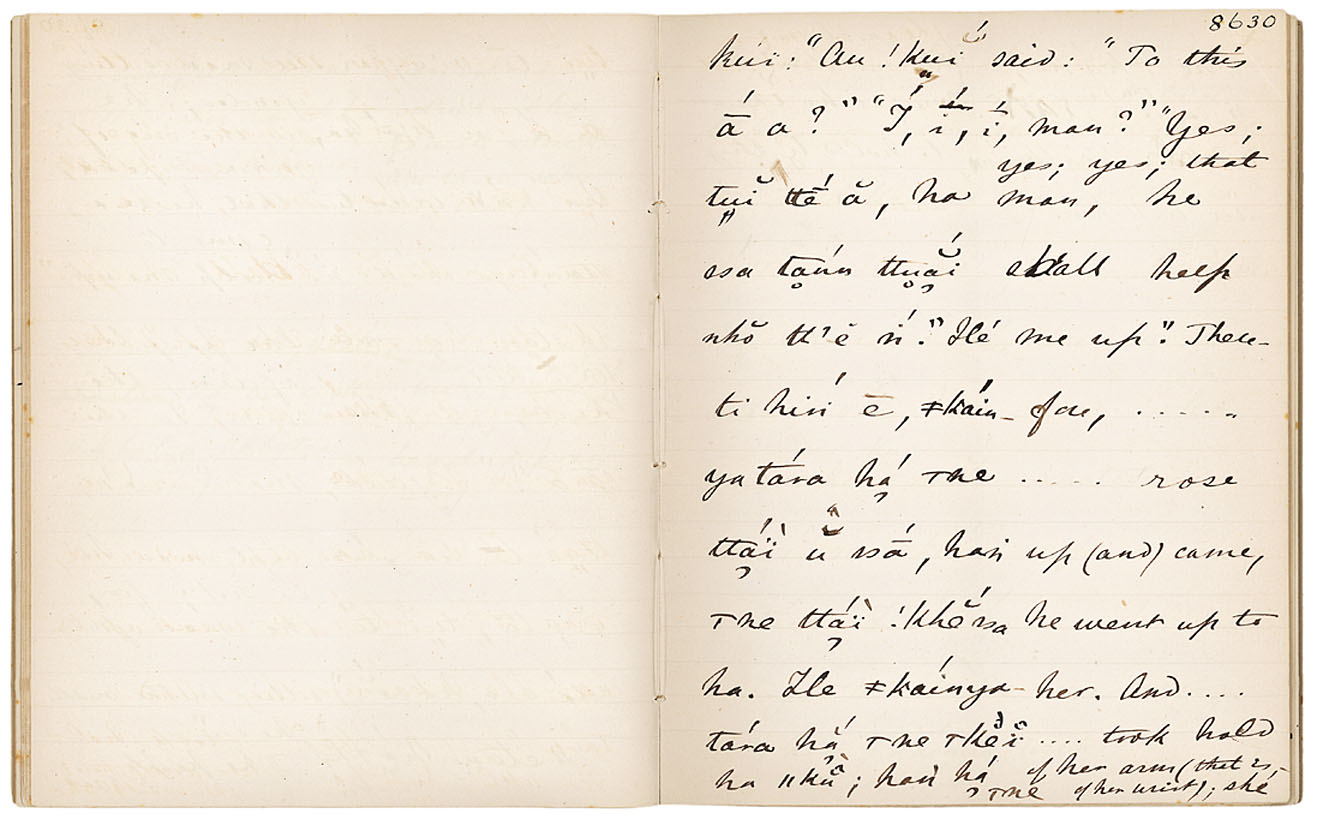 8630
kúï: "Au! kuĭ said: "To this
ā́ a?" "Í, í, í, man?" "Yes;
yes; yes; that
tuĭ tté ă, ha man, he
ssa taṅn ttuắi shall help
nhŏ tt'ĕ ń̄." Hé me up." There-
ti hiṅ ē, ǂkáin- fore, .....
ya tára há ͳne ..... rose
ttáï ŭ ssā́, haṅ up (and) came,
ͳne ttáï !khĕ́ssa he went up to
ha. He ǂkáinya- her. And....
tára há ͳne ͳkĕĭ .... took hold
ha ǁkŭ; haṅ há ͳne of her arm (that is,
of her wrist); she